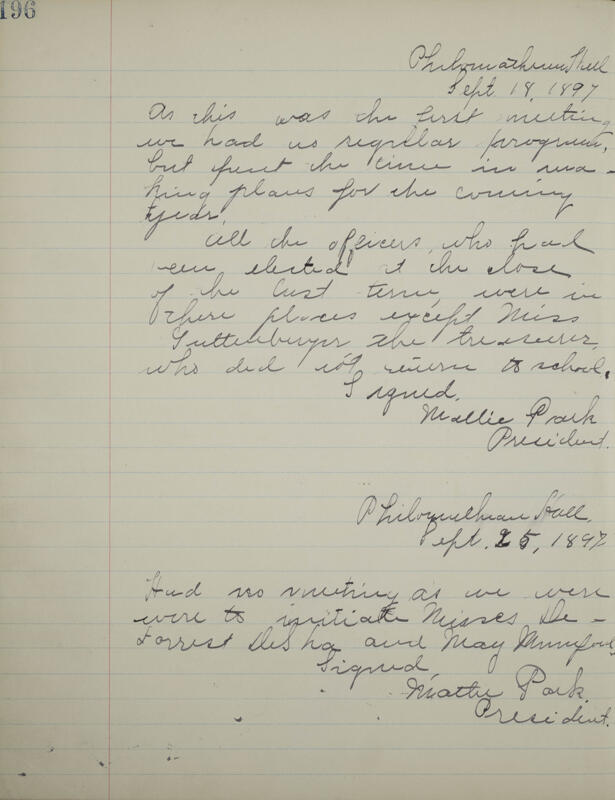 196
Philomathean Hall
Sept 18, 1897
As this was the first meeting
we had no regular program,
but spent the time in ma-
king plans for the coming
year.
All the officers, who had
been elected at the close
of the last term, were in
there places except Miss
Guttenberger the treasurer,
who did not return to school.
Signed.
Mattie Park
President.
Philomathean Hall.
Sept. 25, 1897
Had no meeting as we were
were to initiate Misses De-
Forrest DeSha and May Mumford
Signed
Mattie Park.
President.